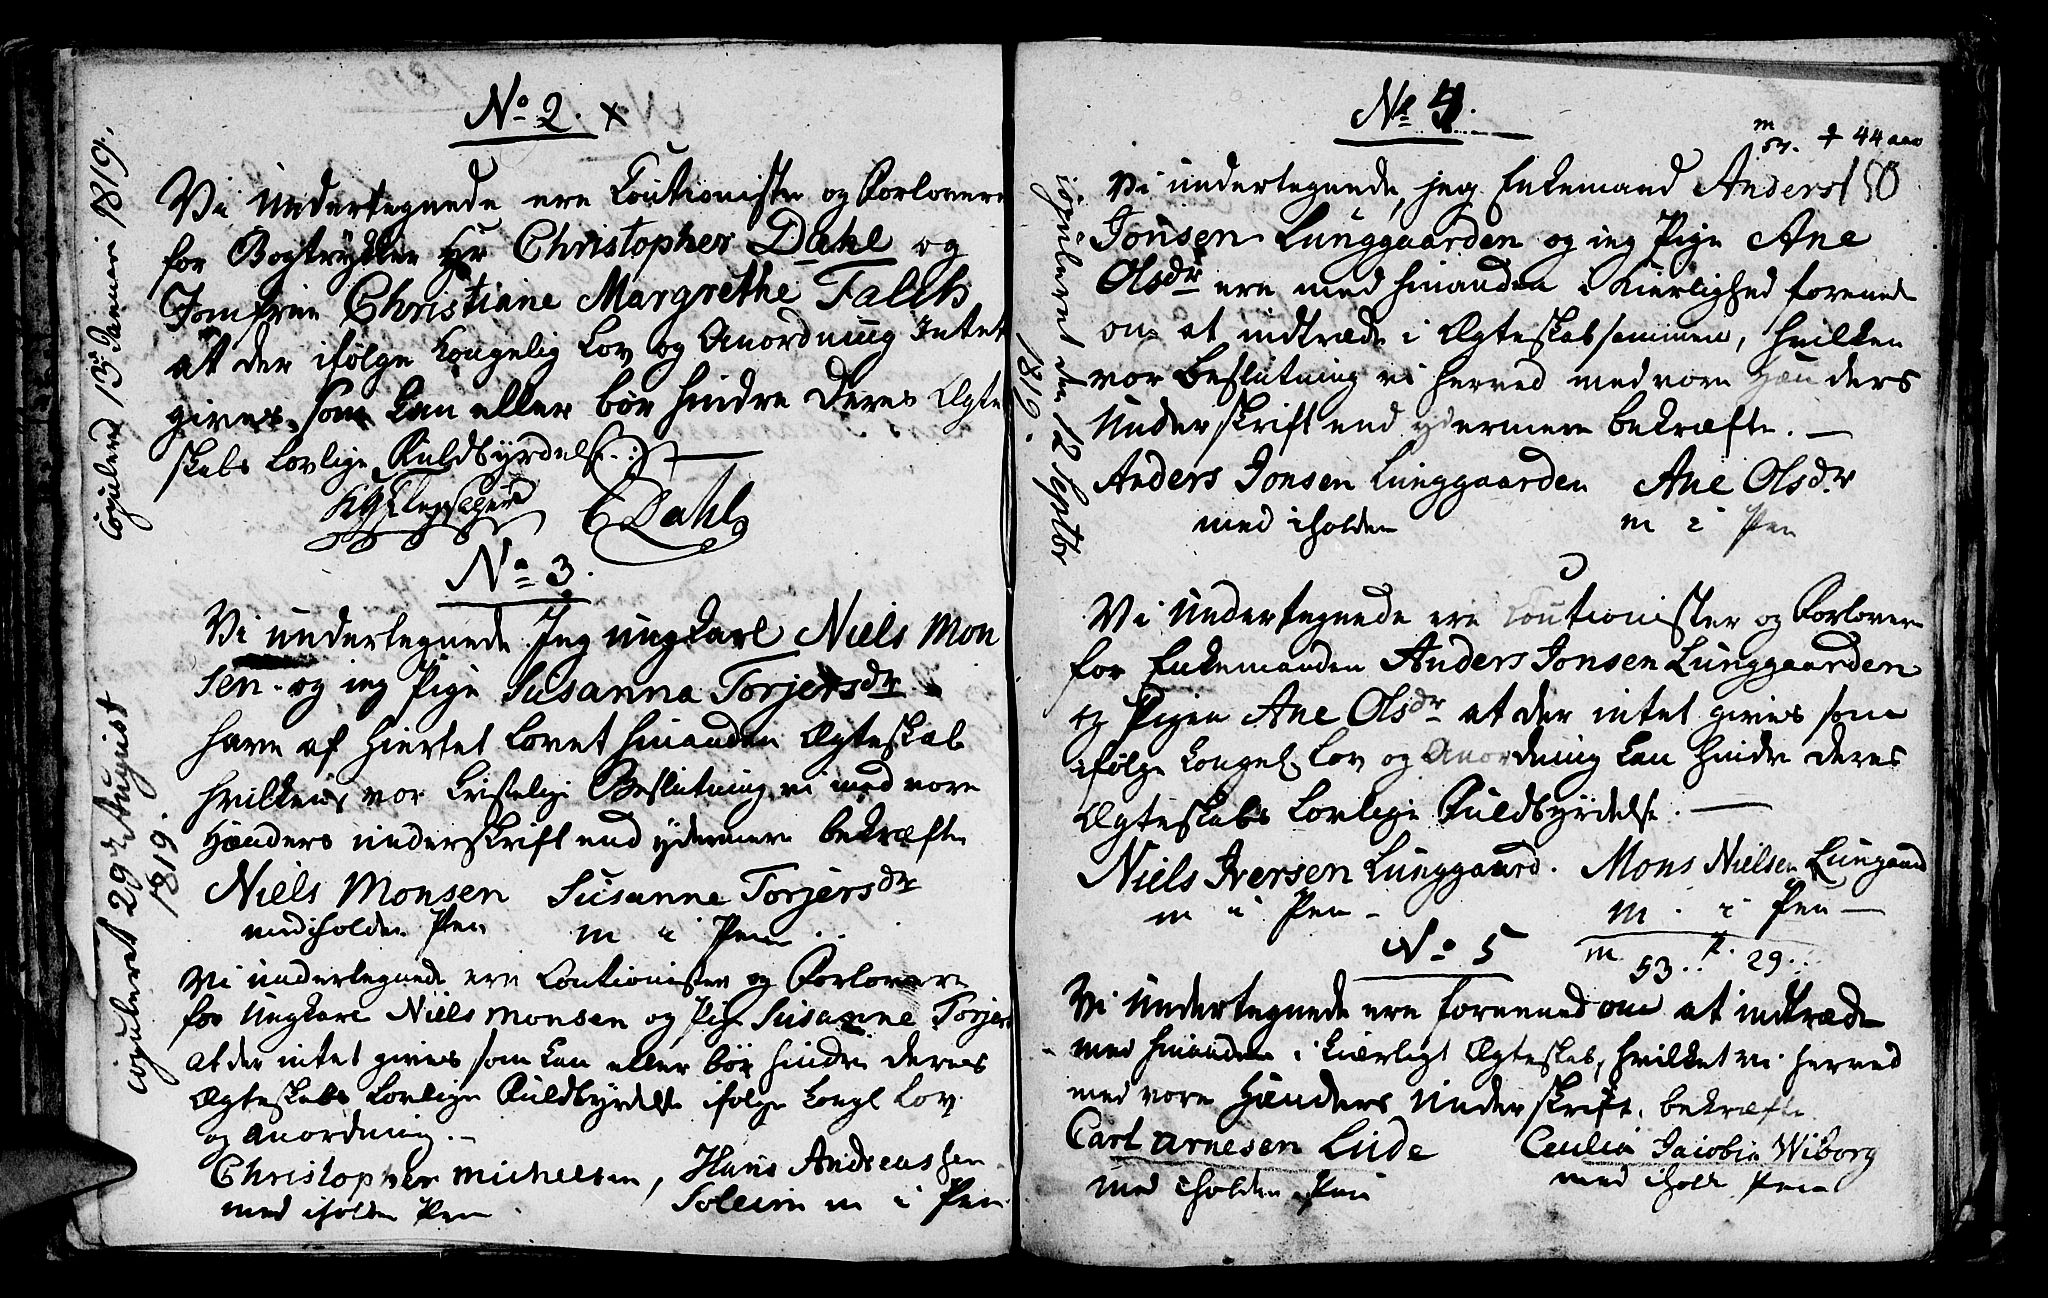 No 2. x
Vi Undertegnede ere Coutionister og Forlovere
for Bogtrykker Hr Christopher Dahl og
Jomfrue Christiane Margrethe Falch
at der ifølge Kongelig Lov og Anordning Intet
gives som kan eller bør hindre deres Ægte
skabs lovlige Fuldbyrdelse
C Dahl
copuleret 13de Januar 1819.
No 3.
Vi undertegnede Jeg ungkarl Niels Mon
sen og ieg Pige Susanna Torjersdr
have af Hiertet lovet hinanden Ægteskab
hvilken vor Kristelige Beslutning vi med vore
Hænders underskrift end ydermere bekræfte
Niels Monsen Susanne Torjersdr
med iholden Pen m i Pen
Vi undertegnede ere Coutionister og Forlovere
for Ungkarl Niels Monsen og Pige Susanne Torjers
at der intet gives som kan eller bør hindre deres
Ægteskabs Lovlige Fuldbyrdelse ifølge Kongl Lov
og Anordning.
Christopher Michelsen, Hans Andreassen
med iholden Pen Soleim m i Pen
copuleret 29de August
1819.
No 4.
m 57. f 44 aar
Vi undertegnede, jeg Enkemand Anders
Jonsen Lunggaarden og ieg Pige Ane
Olsdr ere med hinanden i Kierlighed forenede
om at indtræde i Ægteskabs, hvilken
vor Beslutning vi herved med vore Hænders
Underskrift end ydermere bekræfte.
Anders Jonsen Lunggaarden Ane Olsdr
med iholden m i Pen
copuleret den 12 Septbr
1819.
Vi Undertegnede ere Coutionister og Forlovere
for Enkemanden Anders Jonsen Lunggaarden
og Pigen Ane Olsdr at der intet gives som
ifølge Kongel. Lov og Anordning kan hindre deres
Ægteskabs Lovlige Fuldbyrdelse.
Niels Iversen Lunggaard. Mons Nielsen Lungaard
m i Pen m. i Pen
No 5
m 53.. f. 29..
Vi Undertegnede ere forenede om at indtræde
med hinanden i kiærligt Ægteskab, hvilket vi herved
med vore Hænders Underskrift bekræfte.
Carl Arnesen Lude Cecilia Jacobia Wiborg
med iholden Pen med ihold Pen